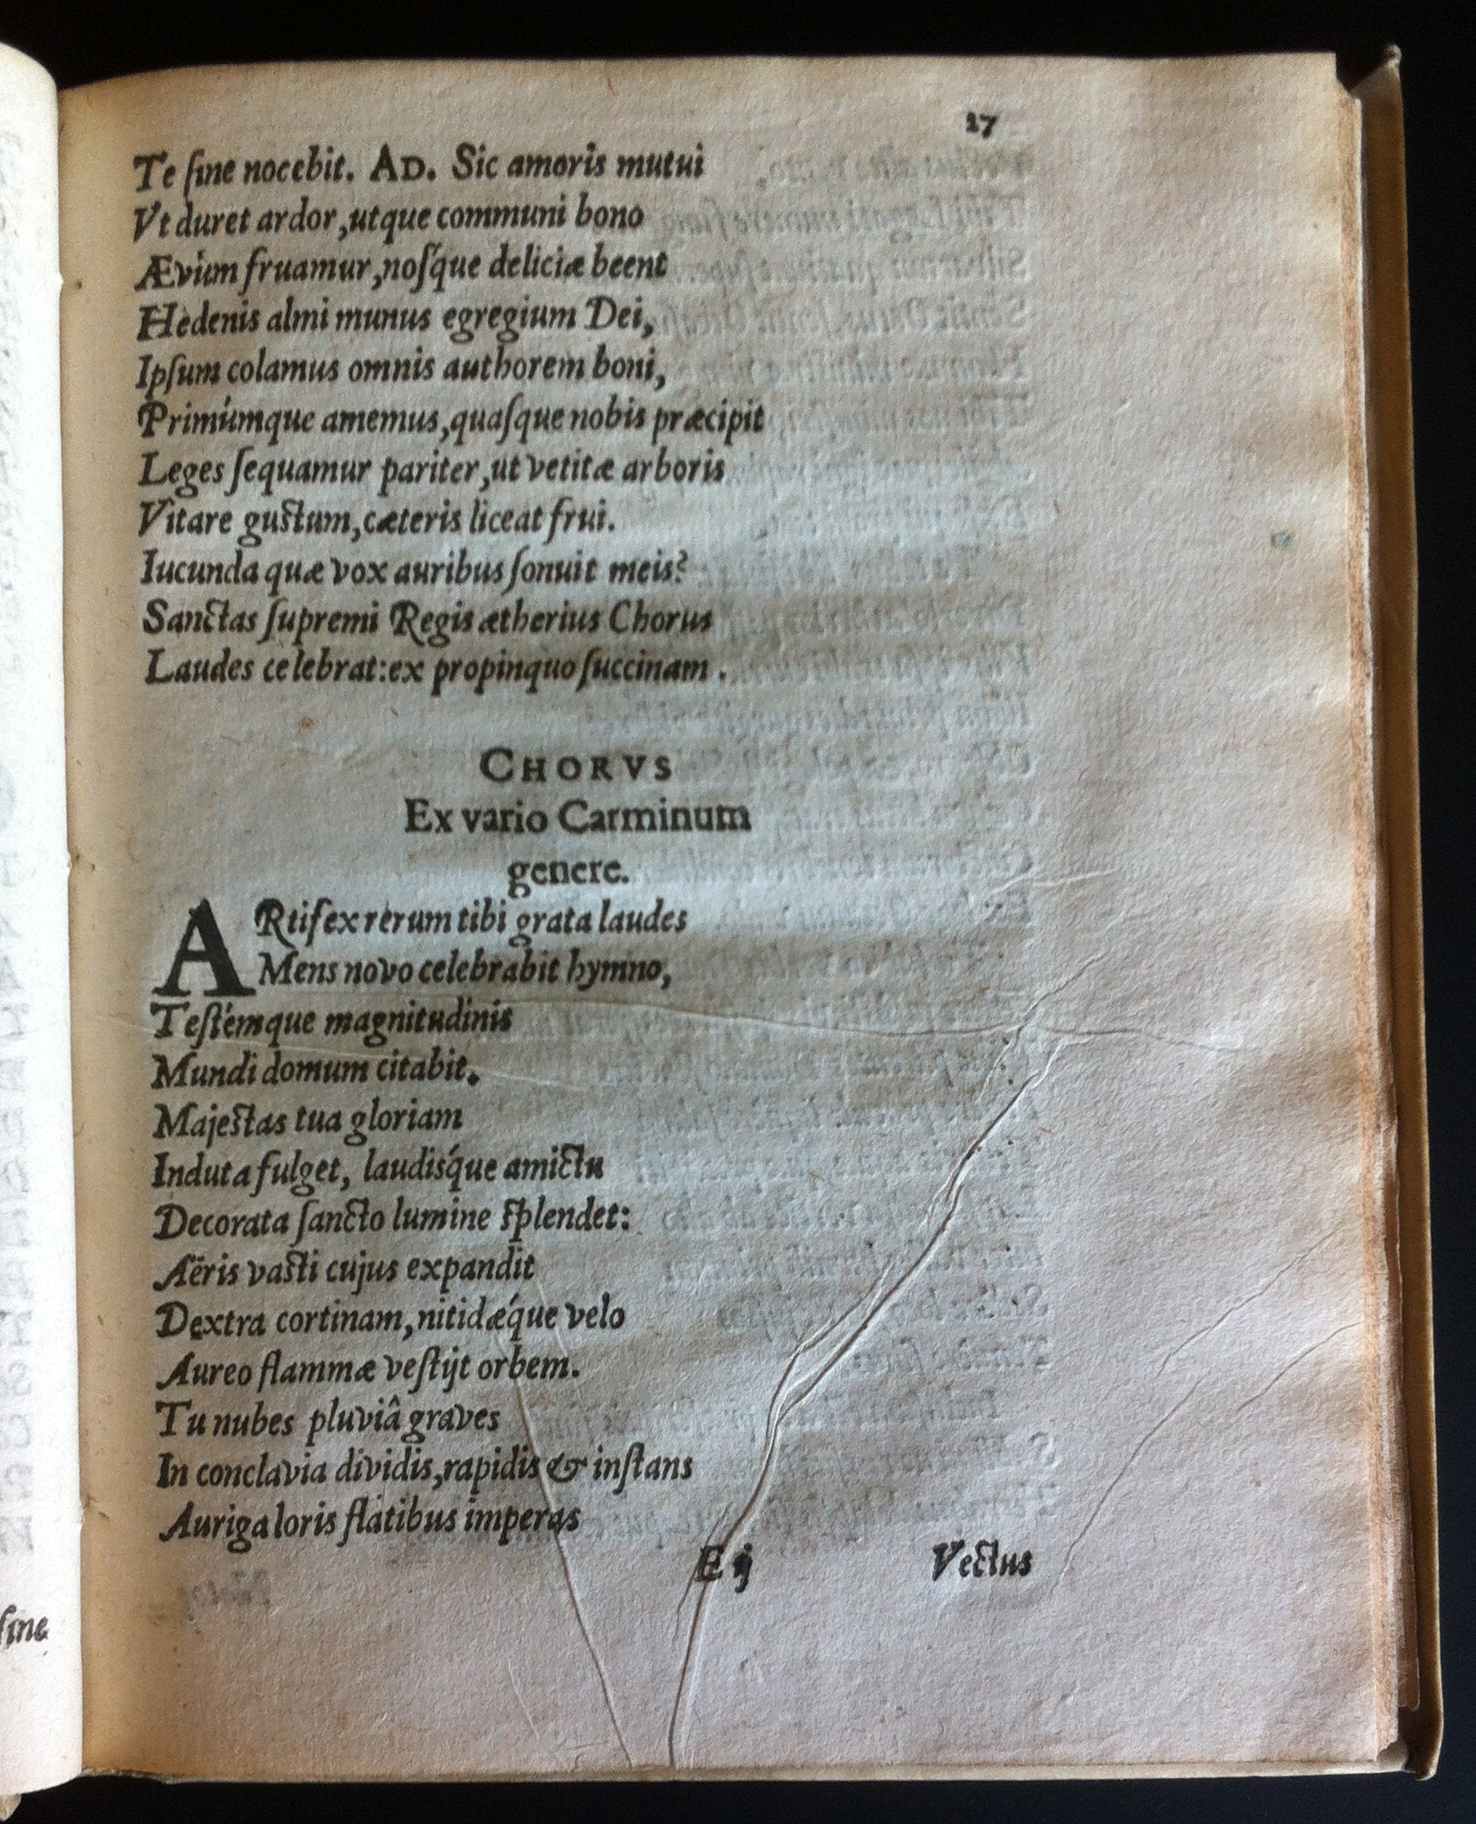 27
Te ſine nocebit. AD. Sic amoris mutui
Vt duret ardor, utque communi bono
Ævúm fruamur, noſque deliciæ beent
Hedenis almi munus egregium Dei,
Ipſum colamus omnis authorem boni,
Primúmque amemus, quaſque nobis præcipit
Leges ſequamur pariter, ut vetitæ arboris
Vitare guſtum, cæteris liceat frui.
Iucunda quæ vox auribus ſonuit meis?
Sanctas ſupremi Regis ætherius Chorus
Laudes celebrat: ex propinquo ſuccinam.
CHORVS
Ex vario Carminum
genere.
ARtifex rerum tibi grata laudes
Mens novo celebrabit hymno,
Teſtémque magnitudinis
Mundi domum citabit.
Majeſtas tua gloriam
Induta fulget, laudiſque amictu
Decorata ſancto lumine ſplendet:
Aëris vaſti cujus expandit
Dextra cortinam, nitidæque velo
Aureo flammæ veſtijt orbem.
Tu nubes pluviâ graves
In conclavia dividis, rapidis & inſtans
Auriga loris flatibus imperas
E ij Vectus
ſine